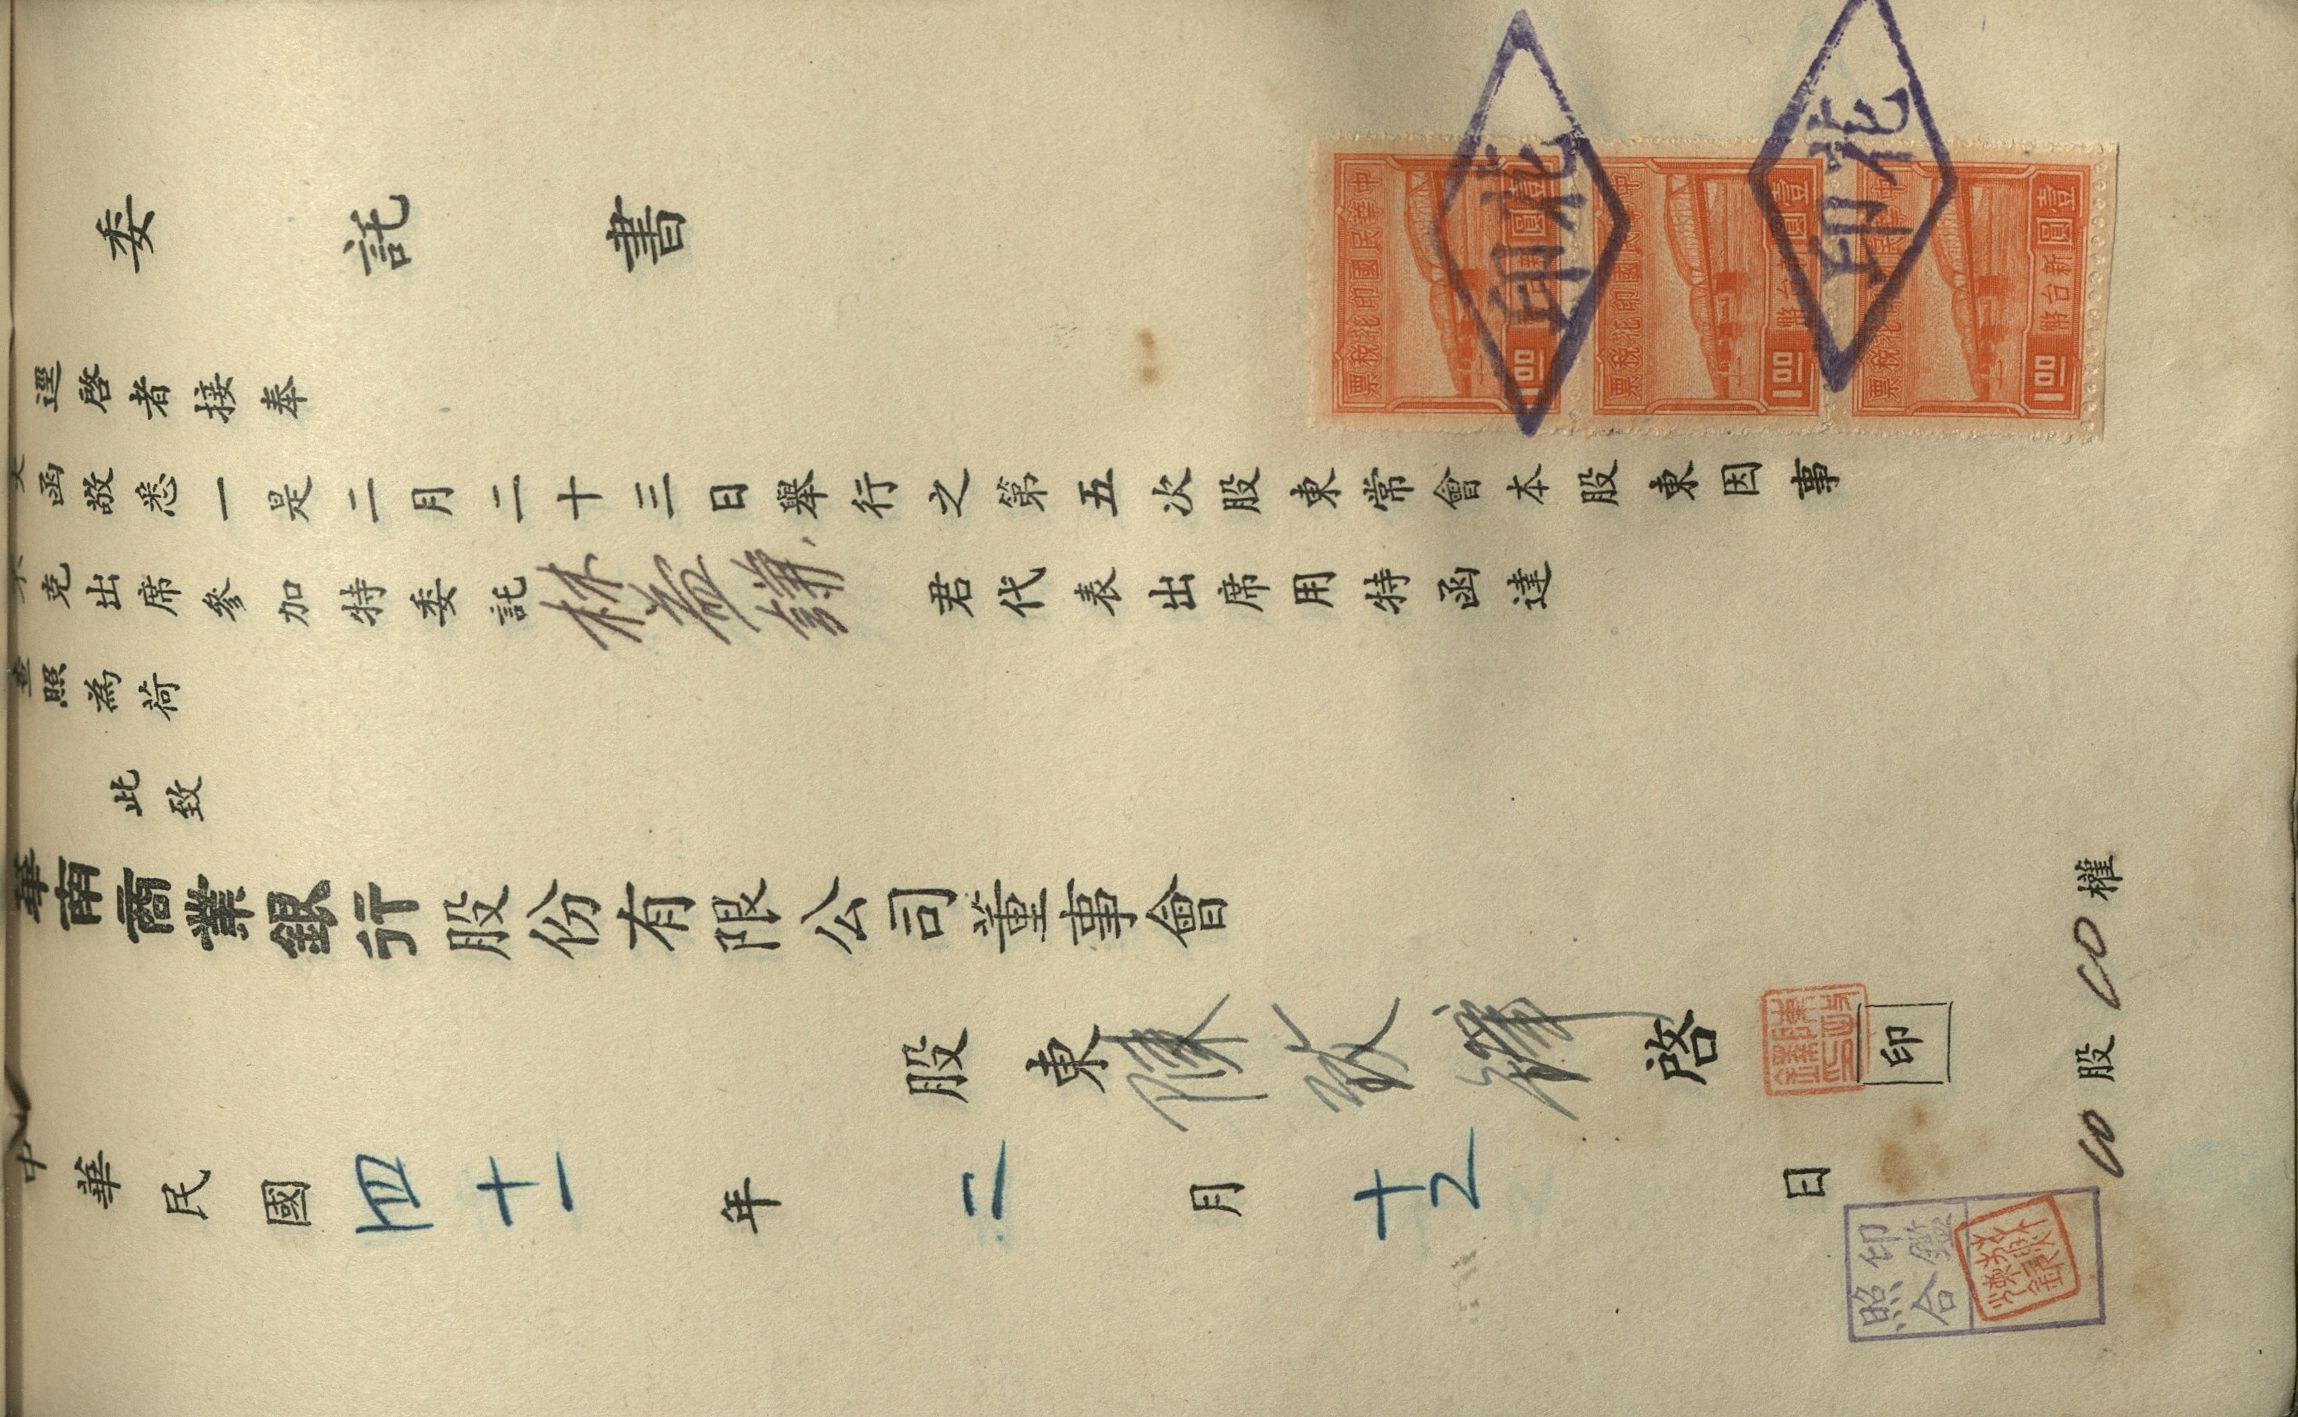 委託書
逕啓者接奉
大函敬悉一是二月二十三日舉行之第五次股東常會本股東因事
未克出席參加特委託林 君代表出席用特函達
查照為荷
此致
華南商業銀行股份有限公司董事會
股東陳 啓
印
中華民國四十一年二月十五日
60股60權
中華民國印花稅票
壹圓新台幣
1.00
中華民國印花稅票
壹圓新台幣
1.00
中華民國印花稅票
壹圓新台幣
1.00
印花
印花
印鑑
照合